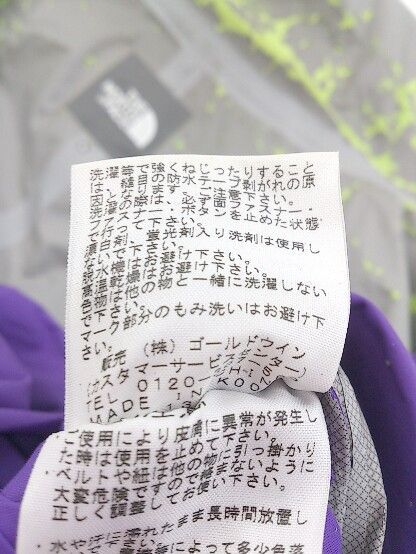 THE NORTH FACE
洗濯等で強くねじったりすること
は、縫目の防水テープ剥がれの原
因となります。ご注意下さい。
洗濯の際は、必ず面ファスナー・
ファスナー、ボタンを止めた状態
で行って下さい。
漂白剤、蛍光剤入り洗剤は使用し
ないで下さい。
脱水機はお避け下さい。
高温乾燥はお避け下さい。
色物は他の物と一緒に洗濯しない
で下さい。
マーク部分のもみ洗いはお避け下
さい。
販売 (株)ゴールドウイン
(カスタマーサービスセンター)
TEL 0120-
MADE
ご使用により皮膚に異常が発生し
た時は使用を止めて下さい。
・ベルトや紐は他の物に引っ掛かり
大変危険ですので絡まないように
正しく調整してお使い下さい。
長時間放置し
・水や汗に濡れたまま
によって多少色落